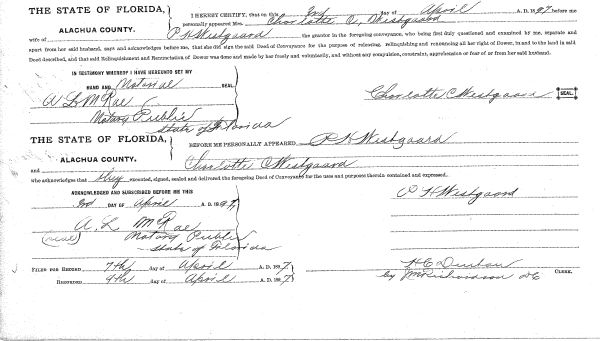 THE STATE OF FLORIDA,
ALACHUA COUNTY.
I HEREBY CERTIFY, that on this 2nd day of April A. D. 1897 before me
personally appeared Mrs. Charlotte C. Westgaard
wife of P H Westgaard the grantor in the foregoing conveyance, who being first duly questioned and examined by me, separate and
apart from her said husband, says and acknowledges before me, that she did sign the said Deed of Conveyance for the purpose of releasing, relinquishing and renouncing all her right of Dower, in and to the land in said
Deed described, and that said Relinquishment and Renunciation of Dower was done and made by her freely and voluntarily, and without any compulsion, constraint, apprehension or fear of or from her said husband.
IN TESTIMONY WHEREOF I HAVE HEREUNTO SET MY
HAND AND Notarial SEAL.
A L McRae
Notary Public
State of Florida
Charlotte C Westgaard SEAL.
THE STATE OF FLORIDA,
ALACHUA COUNTY.
BEFORE ME PERSONALLY APPEARED P H Westgaard
and Charlotte C Westgaard
who acknowledges that they executed, signed, sealed and delivered the foregoing Deed of Conveyance for the uses and purposes therein contained and expressed.
ACKNOWLEDGED AND SUBSCRIBED BEFORE ME THIS
2nd DAY OF April A. D. 1897
A. L McRae
(seal) Notary Public
State of Florida
P H Westgaard
FILED FOR RECORD 7th day of April A. D. 1897
RECORDED 9th day of April A. D. 1897
H C Denton CLERK.
by M Richardson DC